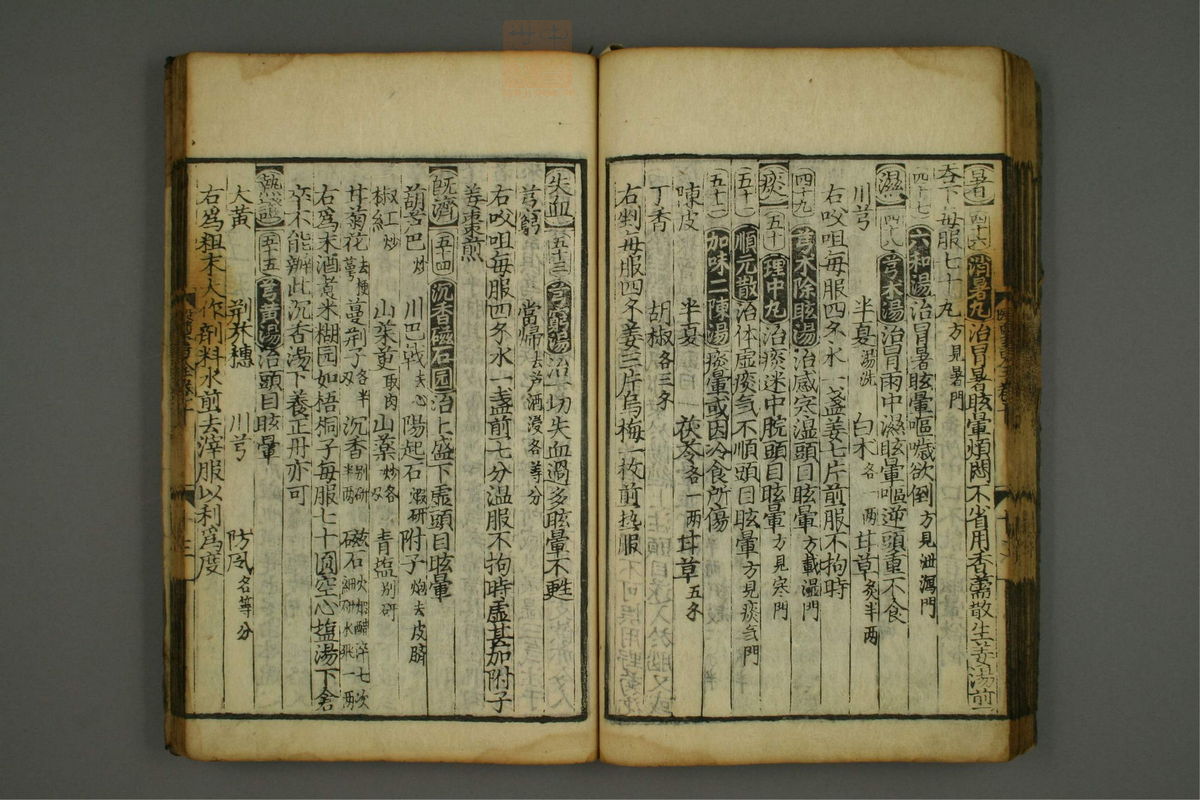 暑 四十六 消暑丸 治冒暑眩暈煩悶不省用香薷散生姜湯煎
吞下每服七十丸 方見暑門
四十七 六和湯 治冒暑眩暈嘔噦欲倒 方見泄瀉門
濕 四十八 芎朮湯 治冒雨中濕眩暈嘔逆頭重不食
川芎 半夏 湯洗 白朮 各一兩 甘草 炙半兩
右㕮咀每服四錢水一盞姜七片煎服不拘時
四十九 芎朮除眩湯 治感寒濕頭目眩暈 方載濕門
痰 五十 理中丸 治痰迷中脘頭目眩暈 方見寒門
五十一 順元散 治体虛痰氣不順頭目眩暈 方見痰氣門
五十二 加味二陳湯 痰暈或因冷食所傷
陳皮 半夏 茯苓 各一兩 甘草 五錢
丁香 胡椒 各三錢
右剉每服四錢姜三片烏梅一枚煎热服
失血 五十三 芎藭湯 治一切失血過多眩暈不甦
芎藭 當歸 去芦酒浸各等分
右㕮咀每服四錢水一盞煎七分温服不拘時虛甚加附子
姜棗煎
既濟 五十四 沉香磁石园 治上盛下虛頭目眩暈
葫芦巴 炒 川巴戟 去心 陽起石 煅研 附子 炮去皮臍
椒紅 炒 山茱萸 取肉 山藥 炒各 青塩 别研
甘菊花 去梗萼 蔓荊子 各半 沉香 别研半兩 磁石 火煅醋淬七次細研水飛一兩
右爲末酒煮米糊园如梧桐子每服七十圓空心塩湯下倉
卒不能辦此沉香湯下養正丹亦可
熱證 五十五 芎黄湯 治頭目眩暈
大黄 荆芥穗 川芎 防风 各等分
右爲粗末入作劑料水煎去滓服以利爲度